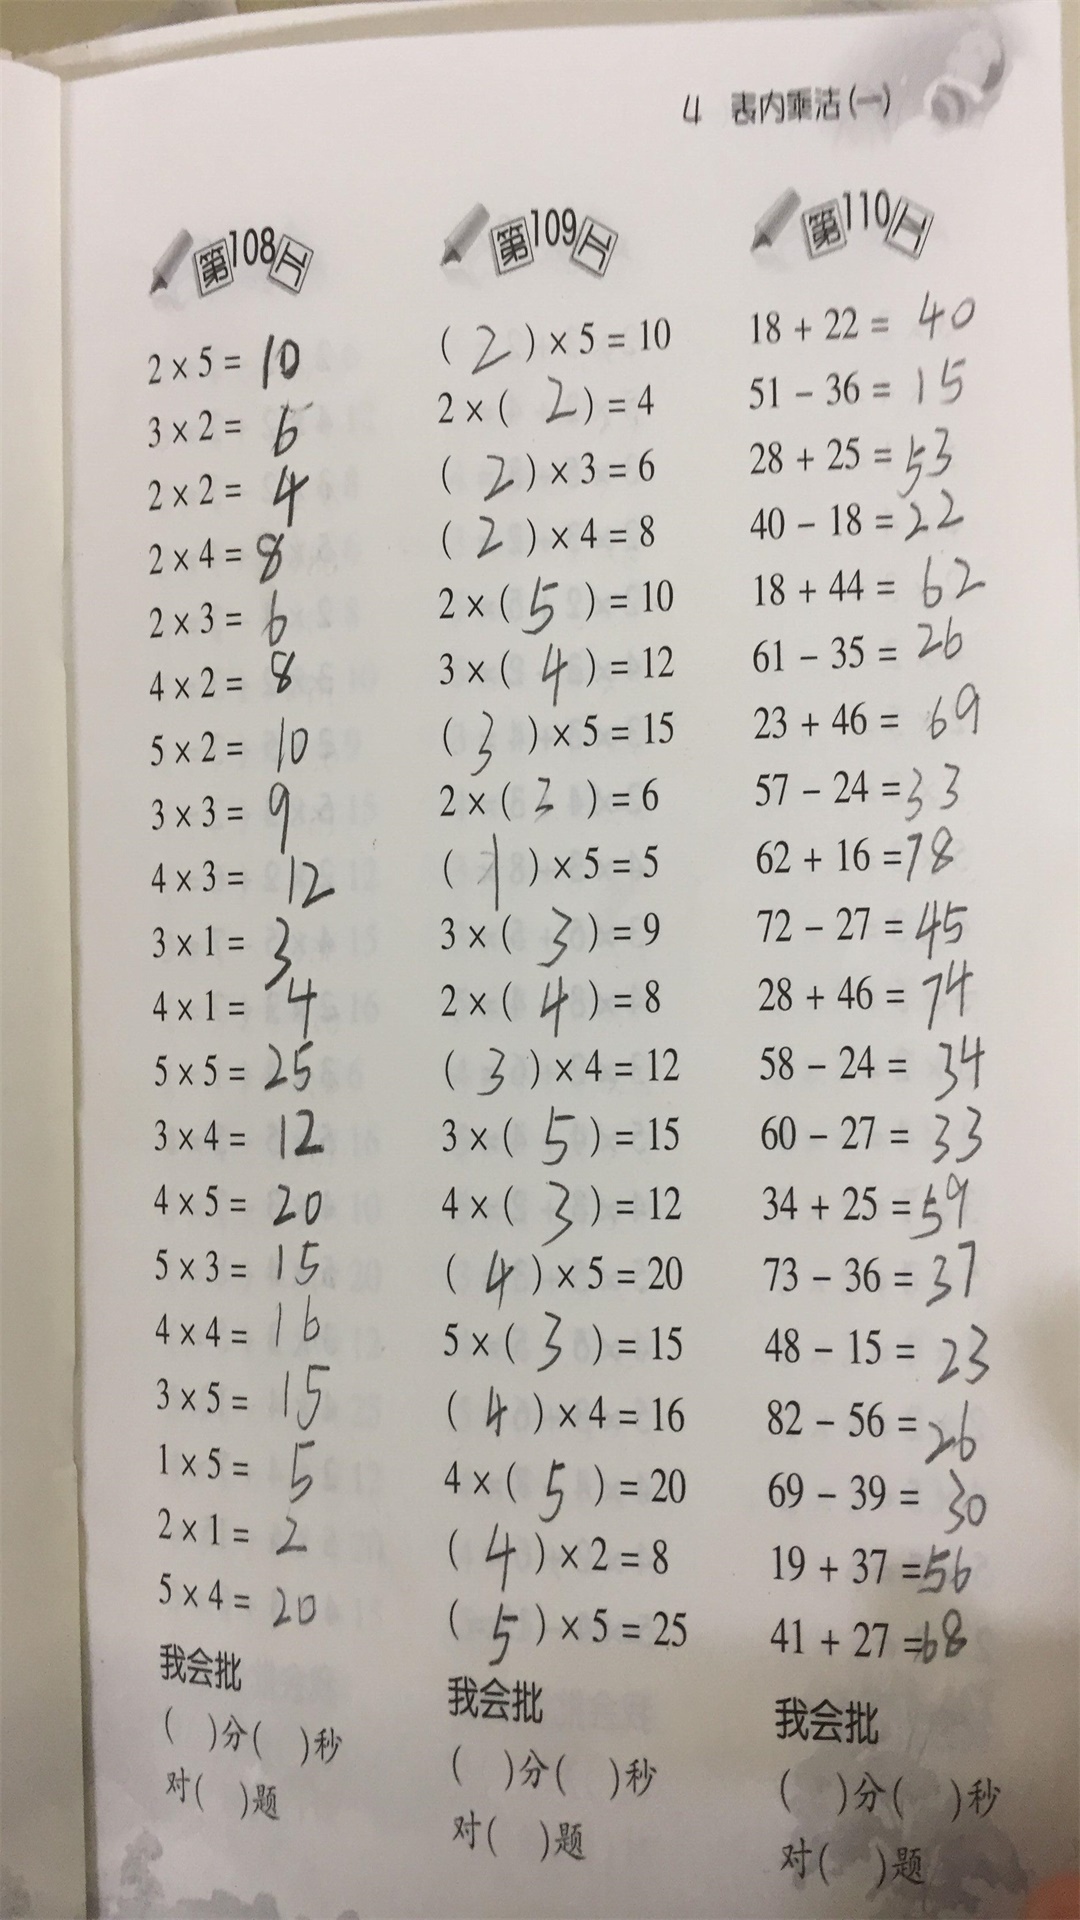 4 表内乘法(一)
第108工
2 × 5 = 10
3 × 2 = 6
2 × 2 = 4
2 × 4 = 8
2 × 3 = 6
4 × 2 = 8
5 × 2 = 10
3 × 3 = 9
4 × 3 = 12
3 × 1 = 3
4 × 1 = 4
5 × 5 = 25
3 × 4 = 12
4 × 5 = 20
5 × 3 = 15
4 × 4 = 16
3 × 5 = 15
1 × 5 = 5
2 × 1 = 2
5 × 4 = 20
我会批
( )分( )秒
对( )题
第109工
( 2 ) × 5 = 10
2 × ( 2 ) = 4
( 2 ) × 3 = 6
( 2 ) × 4 = 8
2 × ( 5 ) = 10
3 × ( 4 ) = 12
( 3 ) × 5 = 15
2 × ( 3 ) = 6
( 1 ) × 5 = 5
3 × ( 3 ) = 9
2 × ( 4 ) = 8
( 3 ) × 4 = 12
3 × ( 5 ) = 15
4 × ( 3 ) = 12
( 4 ) × 5 = 20
5 × ( 3 ) = 15
( 4 ) × 4 = 16
4 × ( 5 ) = 20
( 4 ) × 2 = 8
( 5 ) × 5 = 25
我会批
( )分( )秒
对( )题
第110工
18 + 22 = 40
51 - 36 = 15
28 + 25 = 53
40 - 18 = 22
18 + 44 = 62
61 - 35 = 26
23 + 46 = 69
57 - 24 = 33
62 + 16 = 78
72 - 27 = 45
28 + 46 = 74
58 - 24 = 34
60 - 27 = 33
34 + 25 = 59
73 - 36 = 37
48 - 15 = 23
82 - 56 = 26
69 - 39 = 30
19 + 37 = 56
41 + 27 = 68
我会批
( )分( )秒
对( )题